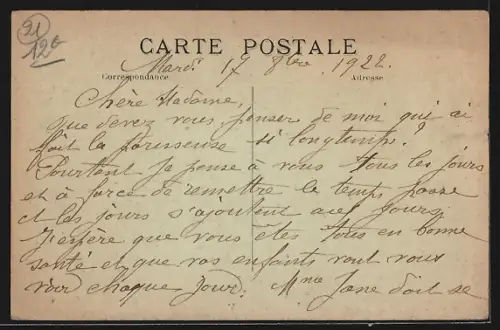 21
120
CARTE POSTALE
Mardi 17 8bre 1922
Correspondance Adresse
Chère Madame,
que devez vous penser de moi qui ai
fait la paresseuse si longtemps?
Pourtant je pense à vous tous les jours
et à force de remettre le temps passe
et les jours s'ajoutent aux jours.
J'espère que vous êtes tous en bonne
santé et que vos enfants vont vous
voir chaque jour. Mme Jane doit se